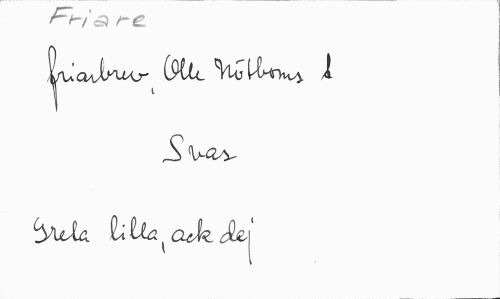 Friare
friarbrev, Olle Nötboms
Svar
Greta lilla, ack dej